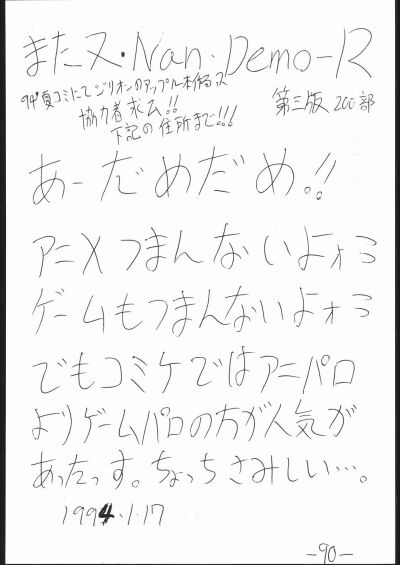 またヌ・Nan・Demo-R
94'夏コミにてジリオンのアップル本作るっス
協力者求ム!!
下記の住所まで!!!
第三版 200部
あーだめだめ!!
アニメつまんないよォミ
ゲームもつまんないよォミ
でもコミケではアニパロ
よりゲームパロの方が人気が
あったっす。ちょっちさみしい…。
1994・1・17
-90-